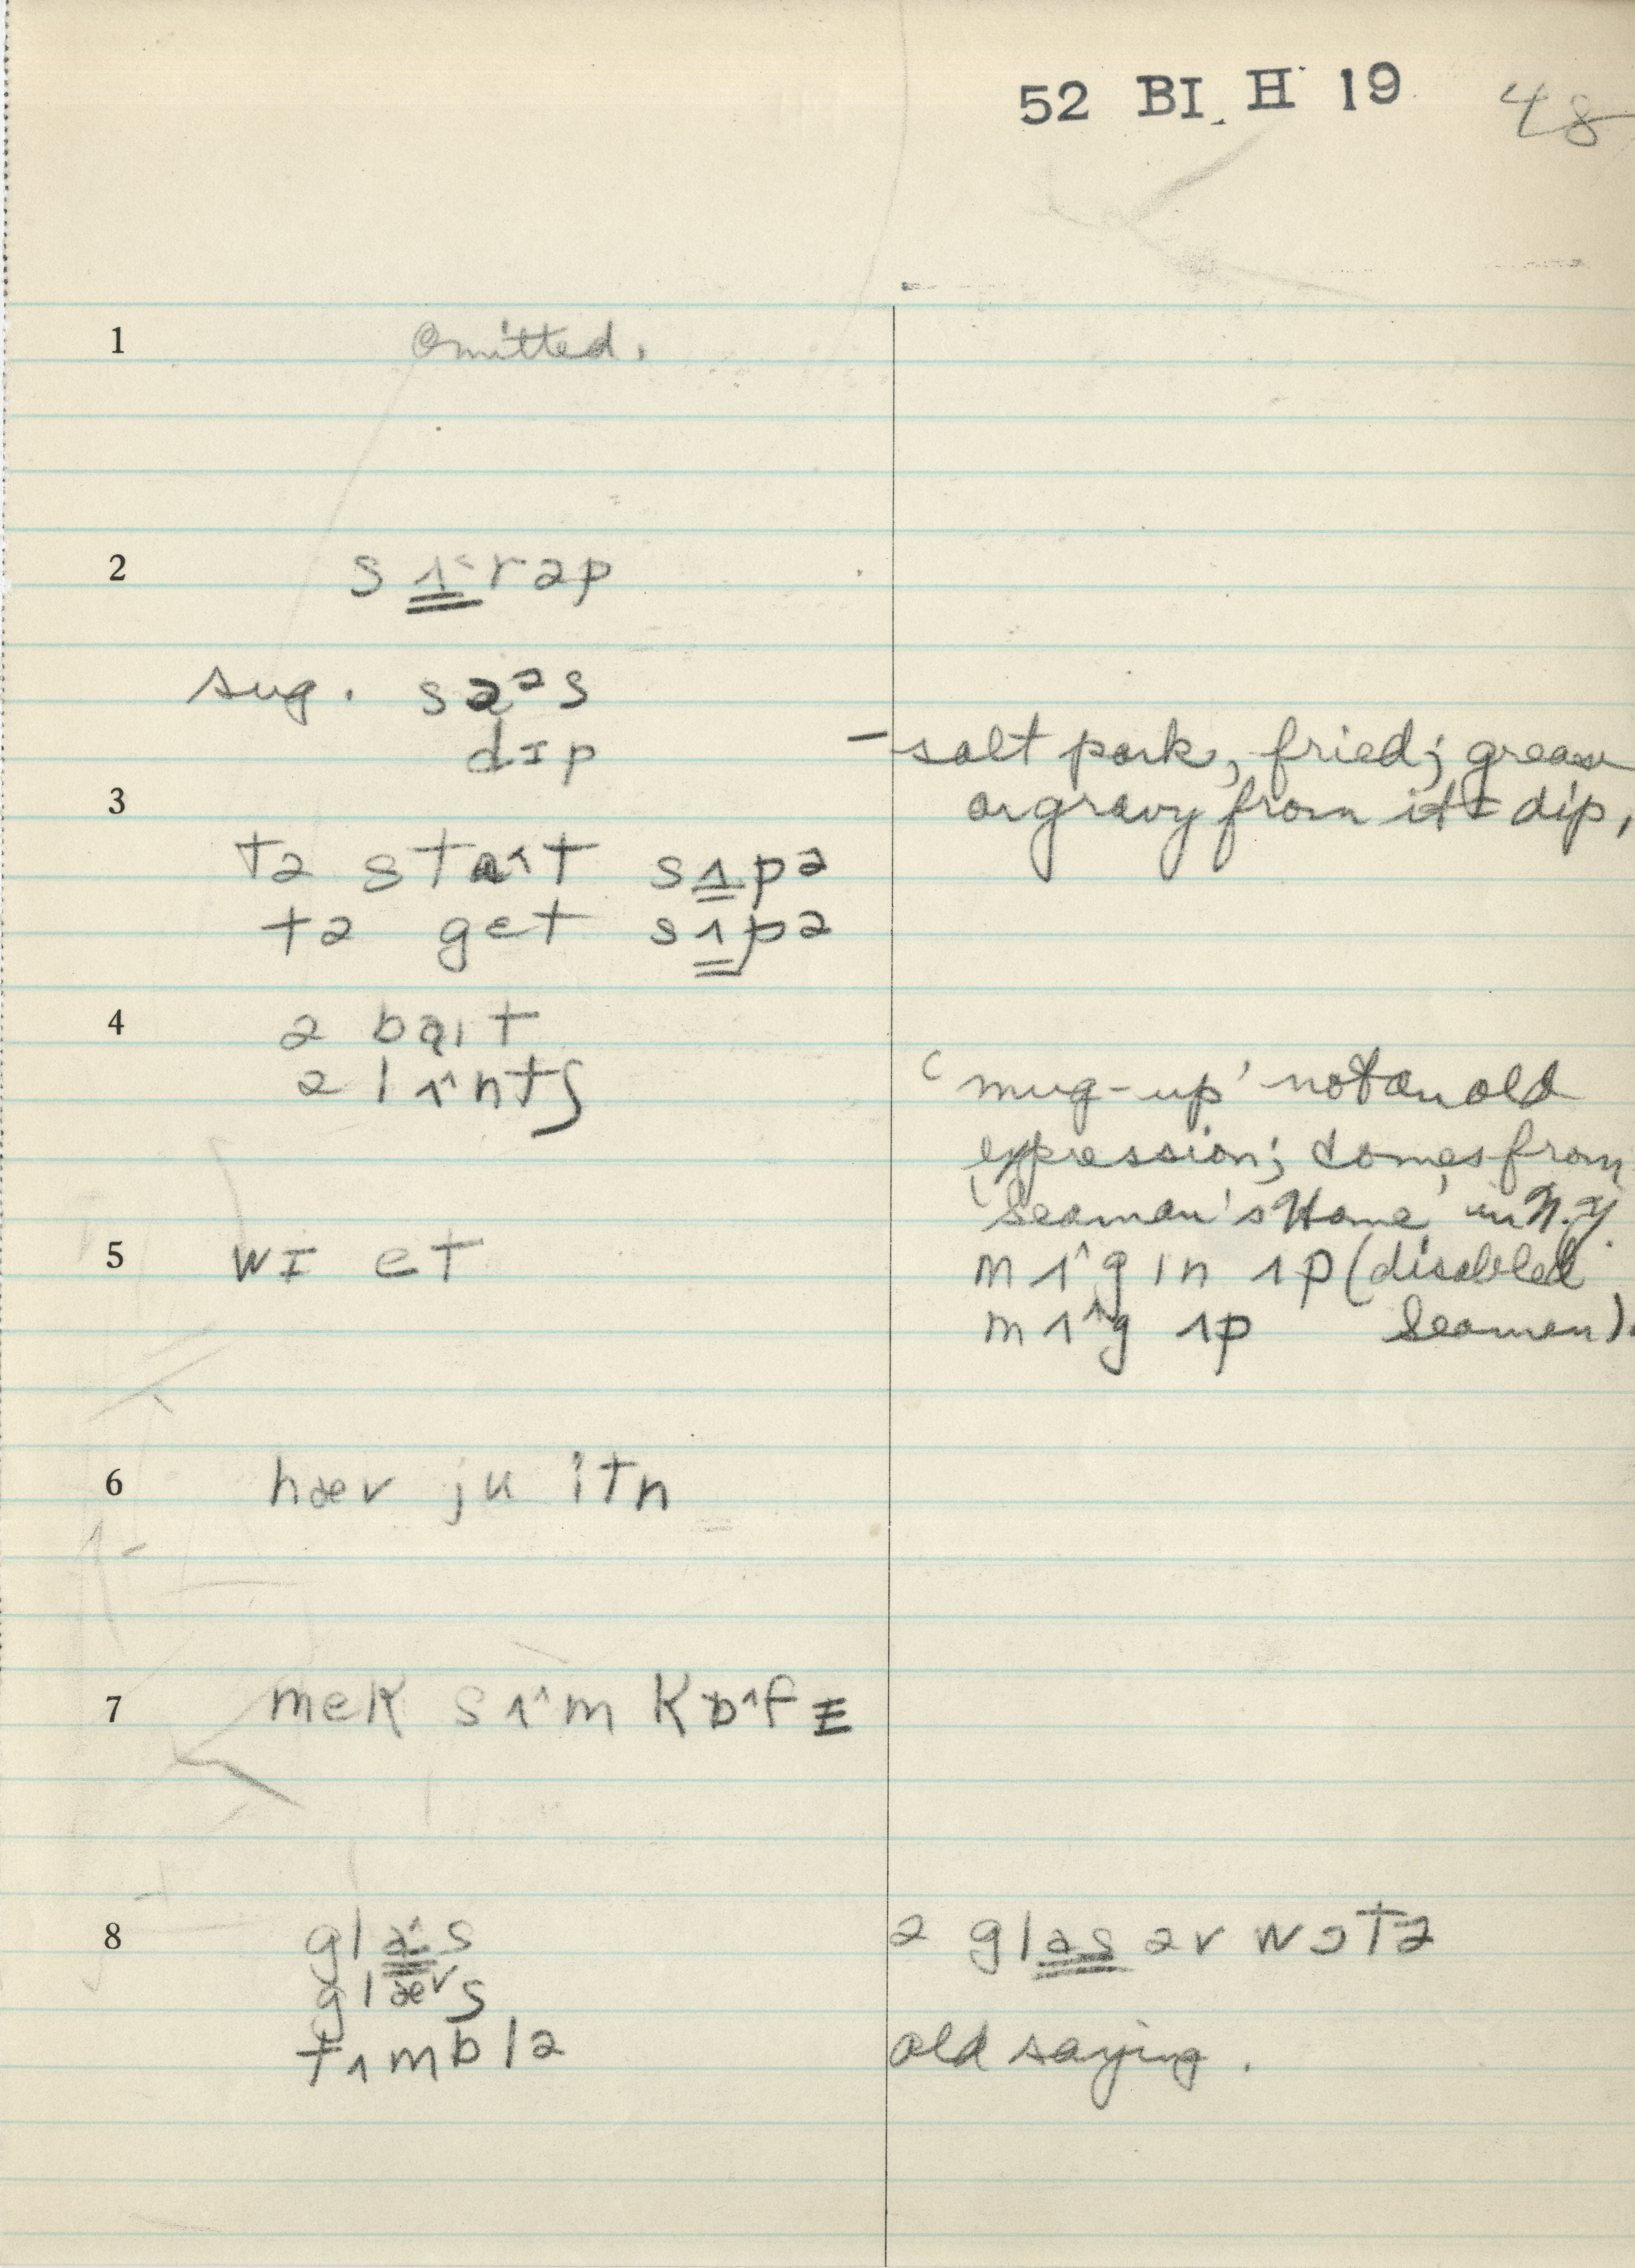 52 BI H 19 48
1 Omitted.
2 sʌ˂rəp
sug. sɑᵊs
dɪp
– salt pork, fried; grease
3 or gravy from it = dip,
tə stɑ˄t sʌpə
tə get sʌpə
4 ə baɪt
ə lʌ˄ntʃ
'mug-up' not an old
expression; comes from
'Seaman's Home' in N.Y.
5 wɪ et
mʌ˄gɪn ʌp (disabled
mʌ˄g ʌp Seamen).
6 hæv ju itn
7 mek sʌ˄m kɒ˄fɪ
8 glа˄s ə glas əv wɔtə
glæ˅s
tʌmblə old saying.